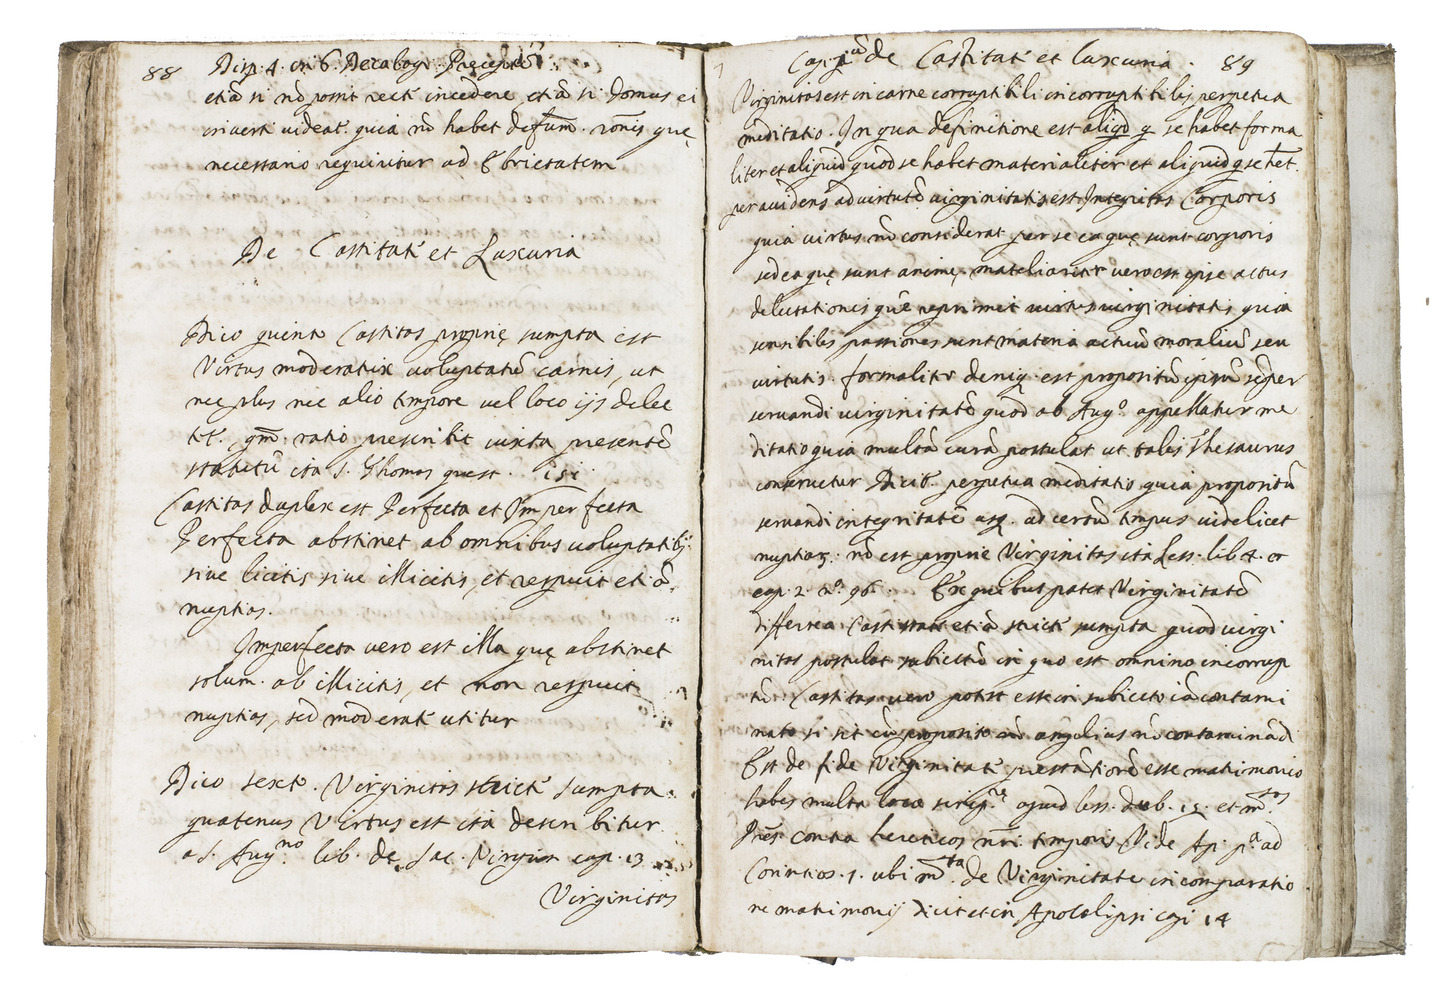 88 Disp. 4. in 6. Decalogi Preceptũ
etiã si nõ possit rectè incedere etiã si domus ei
inverti videat. quia nõ habet defũm. rõnis quę
necessario requiritur ad Ebrietatem
De Castitatè et Luxuria
Dico quinto Castitas propriè sumpta est
Virtus moderatrix voluptatũ carnis, ut
nec plus nec alio tempore vel loco ijs delec
tet. qm̃. ratio prescribit iuxta presentẽ
statutũ ita S. Thomas quest. 151
Castitas duplex est Perfecta et Imperfecta
Perfecta abstinet ab omnibus voluptatibj.
sive licitis sive illicitis, et respuit etiã
nuptias.
Imperfecta vero est illa quę abstinet
solum. ab illicitis, et non respuit
nuptias, sed moderatè utitur
Dico sexto. Virginitas strictè sumpta.
quatenus Virtus est ità describitur
a S. Augno. lib. de Sac. Virgin cap. 13
Virginitas
Cap. de Castitatè et Luxuria. 89
Virginitas est in carne corruptibili incorruptibilis perpetua
meditatio. In qua definitione est aliqd q se habet forma
liter et aliquid quod se habet materialiter et aliquid q se het.
per accidens ad virtutẽ virginitatis est Integritas Corporis
quia virtus nõ considerat per se ea quę sunt corporis
sed ea quę sunt animę. materialiter vero est ipse actus
delectationis quẽ reprimit virtus virginitatis quia
sensibiles passiones sunt materia actuũ moraliũ seu
virtutis. formaliter deniq. est propositũ ipsũ sẽper
servandi virginitatẽ quod ab Augo. appellatur me
ditatio quia multã curã postulat ut talis Thesaurus
conservetur Dicit. perpetua meditatio quia propositũ
servandi integritatẽ usq. ad certũ tempus videlicet
nuptiaꝝ. nõ est propriè Virginitas ità Less. lib 4.
cap. 2. no. 96. Ex quibus patet Virginitatẽ
differre a Castitate etiã strictè sumpta quod virgi
nitas postulat subiectũ in quo est omnino incorrup
tũ Castitas vero potest esse in subiecto iã contami
nato si sit cũ proposito nõ amplius contaminãdi
Est de fide Virginitatè prestãtiorẽ esse matrimonio
habes multa loca script.re apud less. dub. 15. et m.tos
Pres. contra hereticos nri. temporis Vide Ap. p.a ad
Corintios. 7. ubi m.ta de Virginitate in comparatio
ne matrimonij dicit et in Apocalipsi cap 14